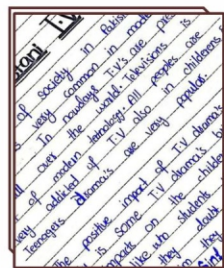 stani T.V
of society in Pakis
very common in mode
In nowadays T.V's are pre
all over In the world. Televisions
of modern tehnology. All peoples are
very addicted of T.V also in childrens
Teenagers drama's are very popular.
The positive impact of T.V drama
is Some T.V drama's
impacts on the child
like who students
they